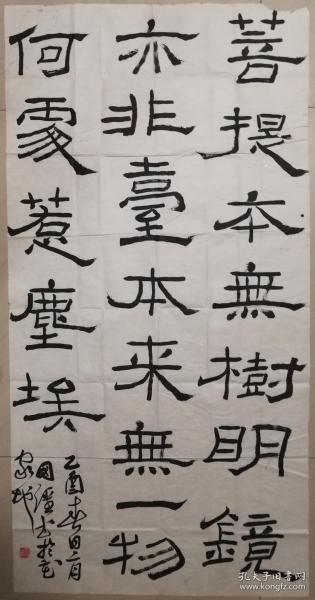 菩提本無樹明鏡
亦非臺本来無一物
何處惹塵埃
乙酉春日
孔夫子旧书网